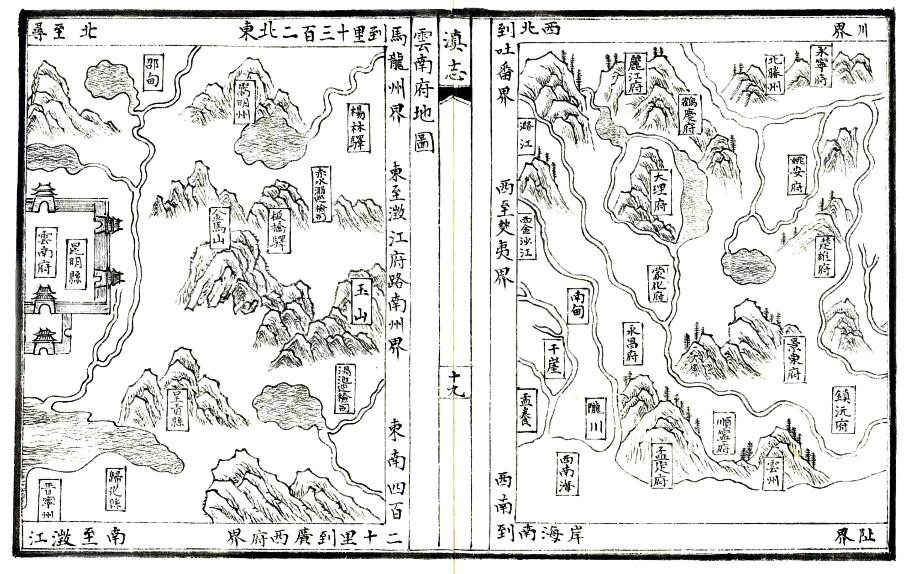 川界
西北
到吐番界
西至僰夷界
西南
到南海岸
阯界
永寧府
北勝州
麗江府
鶴慶府
潞江
大理府
姚安府
西金沙江
楚雄府
蒙化府
南甸
永昌府
景東府
干崖
孟養
隴川
鎮沅府
順寧府
西南海
孟定府
雲州
滇志
十九
雲南府地圖
東北二百三十里到
馬龍州界
東至澂江府路南州界
東南四百
二十里到廣西府界
南至澂江
北至尋
邵甸
嵩明州
楊林驛
赤水鵬巡檢司
板橋驛
金馬山
雲南府
昆明縣
玉山
湯池巡檢司
呈貢縣
歸化縣
晉寧州